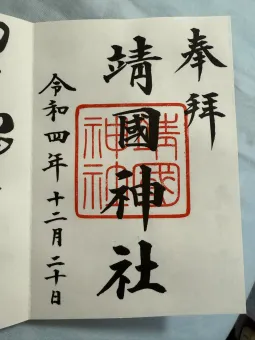 奉拝
靖國神社
靖國神社
令和四年十二月二十日